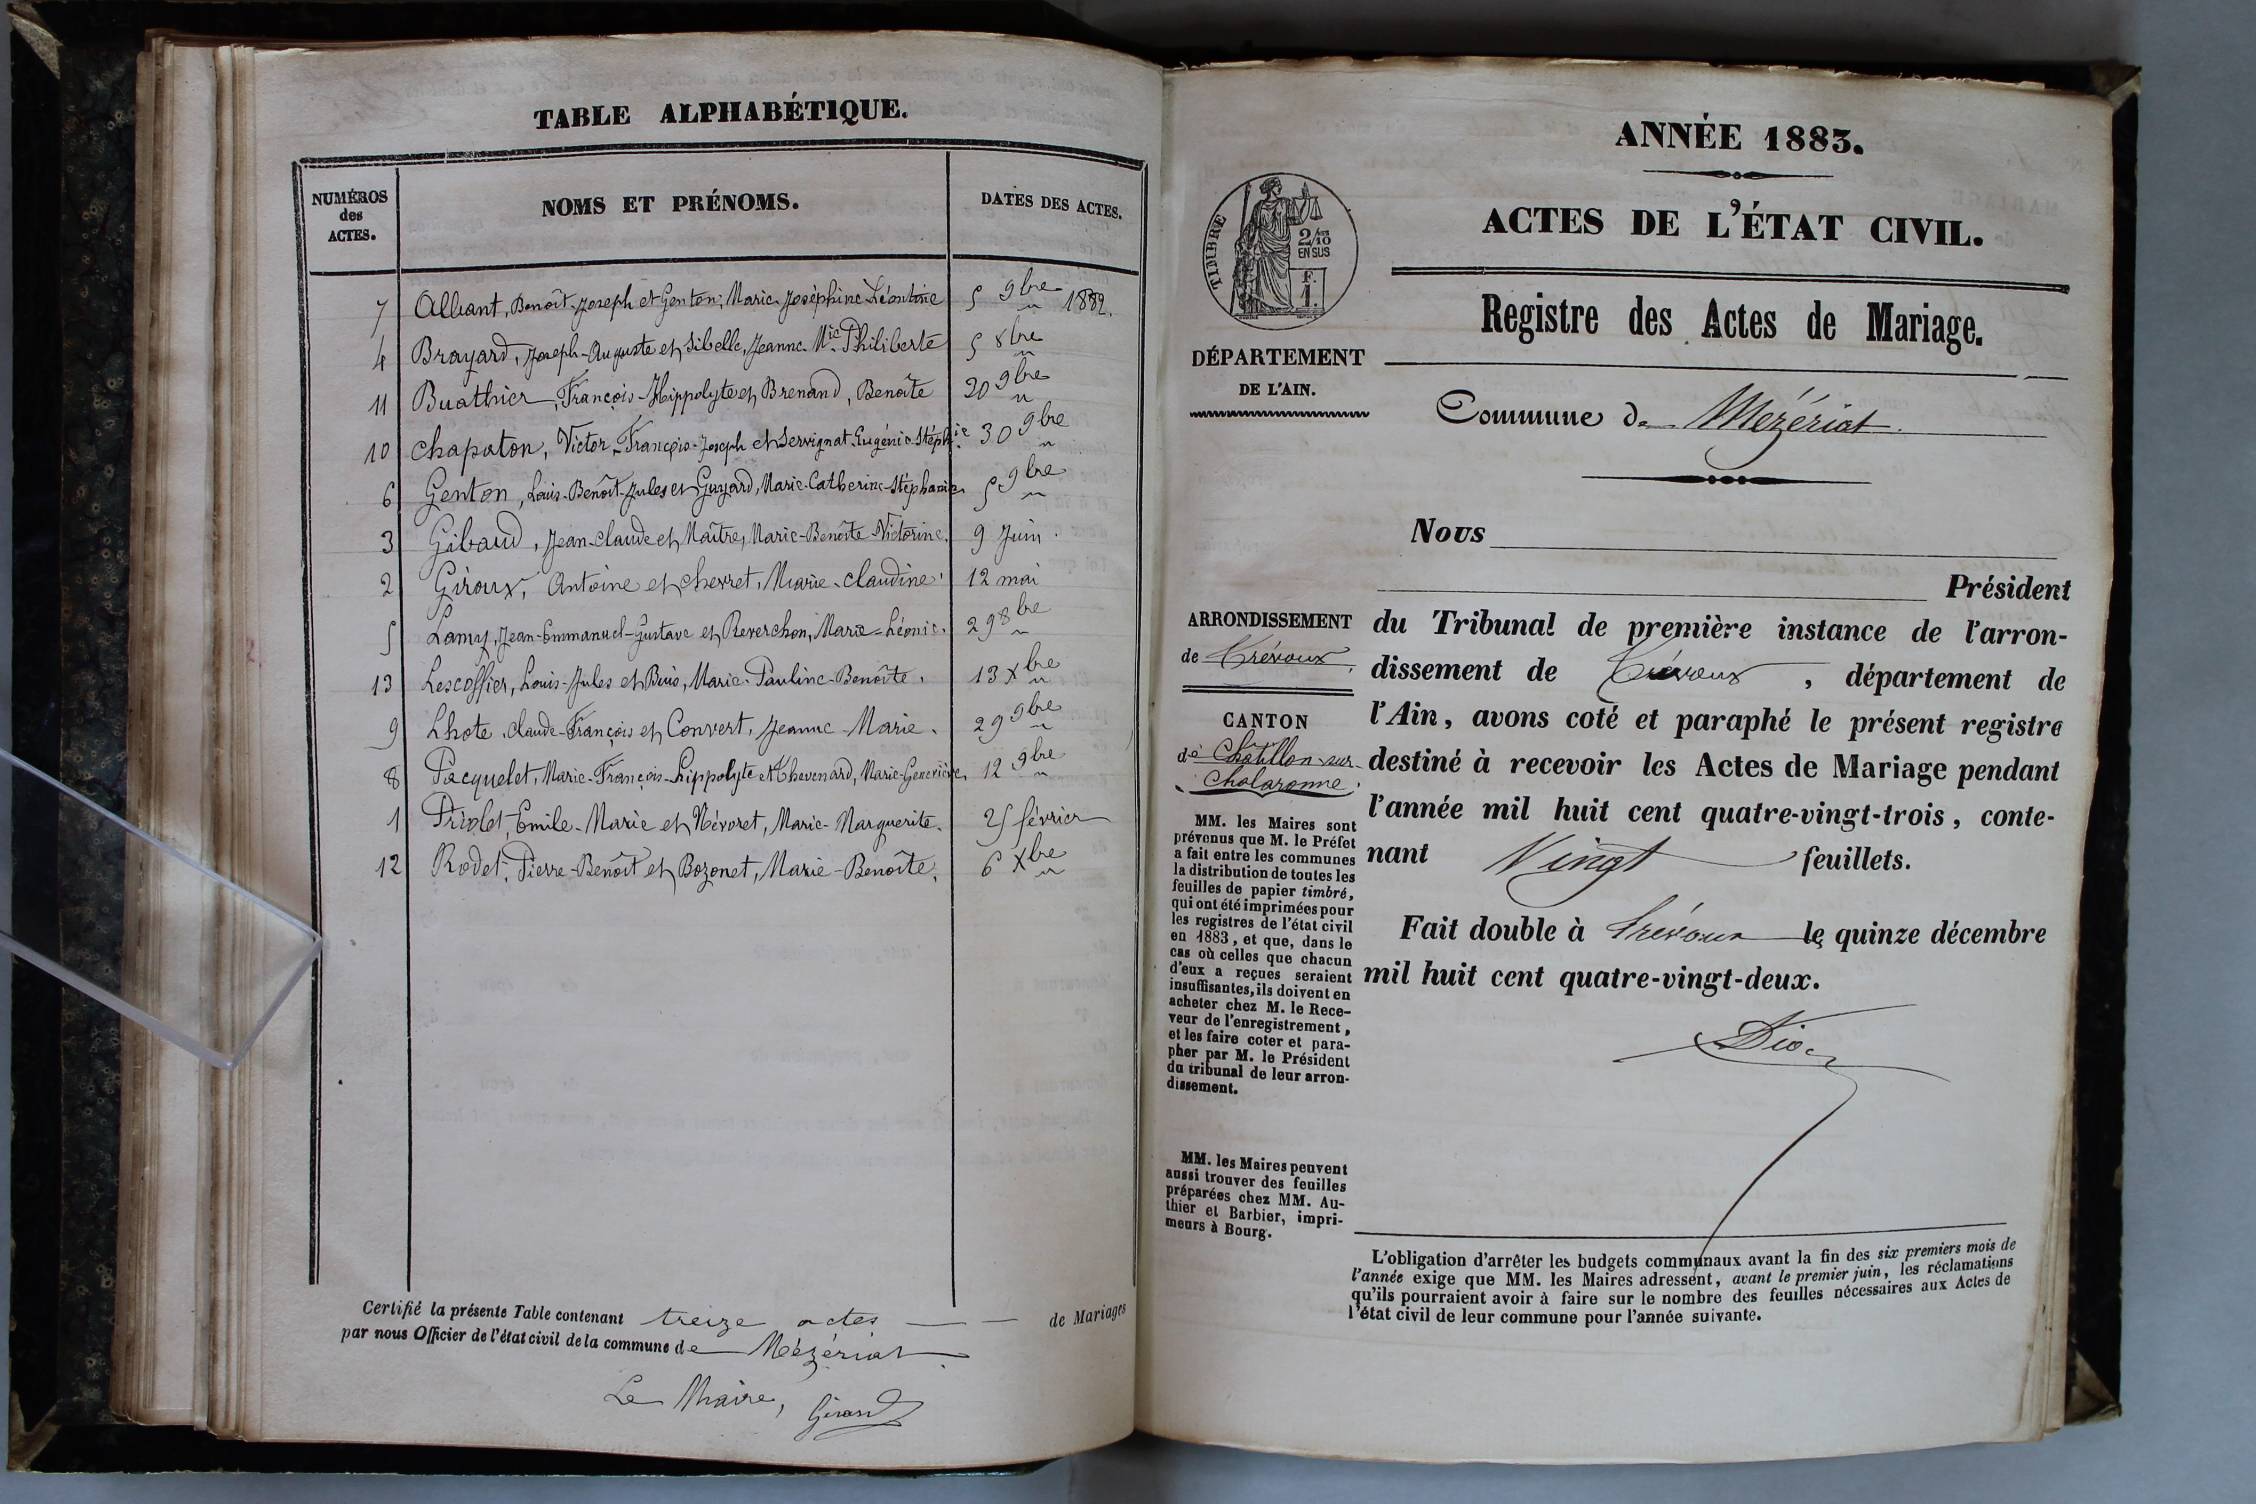 TABLE ALPHABÉTIQUE.
NUMÉROS des ACTES. NOMS ET PRÉNOMS. DATES DES ACTES.
7 Alliant, Benoît-Joseph et Genton, Marie-Joséphine-Léontine 5 9bre 1882.
4 Brayard, Joseph-Auguste et Sibelle, Jeanne-Mie Philiberte 5 8bre "
11 Buathier, François-Hippolyte et Brenand, Benoîte 20 9bre "
10 Chapaton, Victor-François-Joseph et Servignat Eugénie-Stéphie 30 9bre "
6 Genton, Louis-Benoît-Jules et Guyard, Marie-Catherine-Stéphanie 5 9bre "
3 Gibaud, Jean-Claude et Maître, Marie-Benoîte-Victorine. 9 Juin.
2 Giroux, Antoine et Cherret, Marie-Claudine. 12 mai
5 Lamy, Jean-Emmanuel-Gustave et Reverchon, Marie-Léonie. 29 8bre "
13 Lescoffier, Louis-Jules et Buis, Marie-Pauline-Benoîte. 13 Xbre "
9 Lhote, Claude-François et Convert, Jeanne-Marie. 29 9bre "
8 Pacquelet, Marie-François-Hippolyte et Thevenard, Marie-Geneviève, 12 9bre "
1 Priolet, Emile-Marie et Névoret, Marie-Marguerite. 25 février
12 Rodet, Pierre-Benoît et Bozonet, Marie-Benoîte. 6 Xbre "
Certifié la présente Table contenant treize actes de Mariages
par nous Officier de l'état civil de la commune de Mézériat
Le Maire, Girard
ANNÉE 1883.
ACTES DE L'ÉTAT CIVIL.
TIMBRE
2/10
EN SUS
F.
1.
Registre des Actes de Mariage.
DÉPARTEMENT
DE L'AIN.
Commune de Mézériat.
Nous
Président
du Tribunal de première instance de l'arron-
dissement de Trévoux, département de
l'Ain, avons coté et paraphé le présent registre
destiné à recevoir les Actes de Mariage pendant
l'année mil huit cent quatre-vingt-trois, conte-
nant Vingt feuillets.
Fait double à Trévoux le quinze décembre
mil huit cent quatre-vingt-deux.
ARRONDISSEMENT
de Trévoux.
CANTON
de Châtillon-sur-
Chalaronne.
MM. les Maires sont
prévenus que M. le Préfet
a fait entre les communes
la distribution de toutes les
feuilles de papier timbré,
qui ont été imprimées pour
les registres de l'état civil
en 1883, et que, dans le
cas où celles que chacun
d'eux a reçues seraient
insuffisantes, ils doivent en
acheter chez M. le Rece-
veur de l'enregistrement,
et les faire coter et para-
pher par M. le Président
du tribunal de leur arron-
dissement.
MM. les Maires peuvent
aussi trouver des feuilles
préparées chez MM. Au-
thier et Barbier, impri-
meurs à Bourg.
L'obligation d'arrêter les budgets communaux avant la fin des six premiers mois de
l'année exige que MM. les Maires adressent, avant le premier juin, les réclamations
qu'ils pourraient avoir à faire sur le nombre des feuilles nécessaires aux Actes de
l'état civil de leur commune pour l'année suivante.